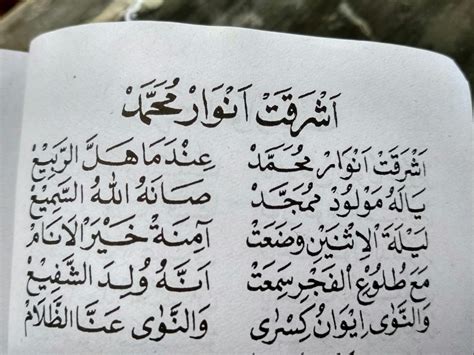 اَشْرَقَتْ اَنْوَارُ مُحَمَّدْ
اَشْرَقَتْ اَنْوَارُ مُحَمَّدْ عِنْدَمَا هَلَّ الرَّبِيْعْ
يَالَهُ مَوْلُوْدٌ مُمَجَّدْ صَانَهُ اللهُ السَّمِيْعْ
لَيْلَةَ الْاِثْنَيْنِ وَضَعَتْ آمِنَةْ خَيْرَ الْاَنَامْ
مَعَ طُلُوْعِ الْفَجْرِ سَمِعَتْ اَنَّهُ وُلِدَ الشَّفِيْعْ
وَالنَّوٰى اِيْوَانُ كِسْرٰى وَالنَّوٰى عَنَّا الظَّلَامْ